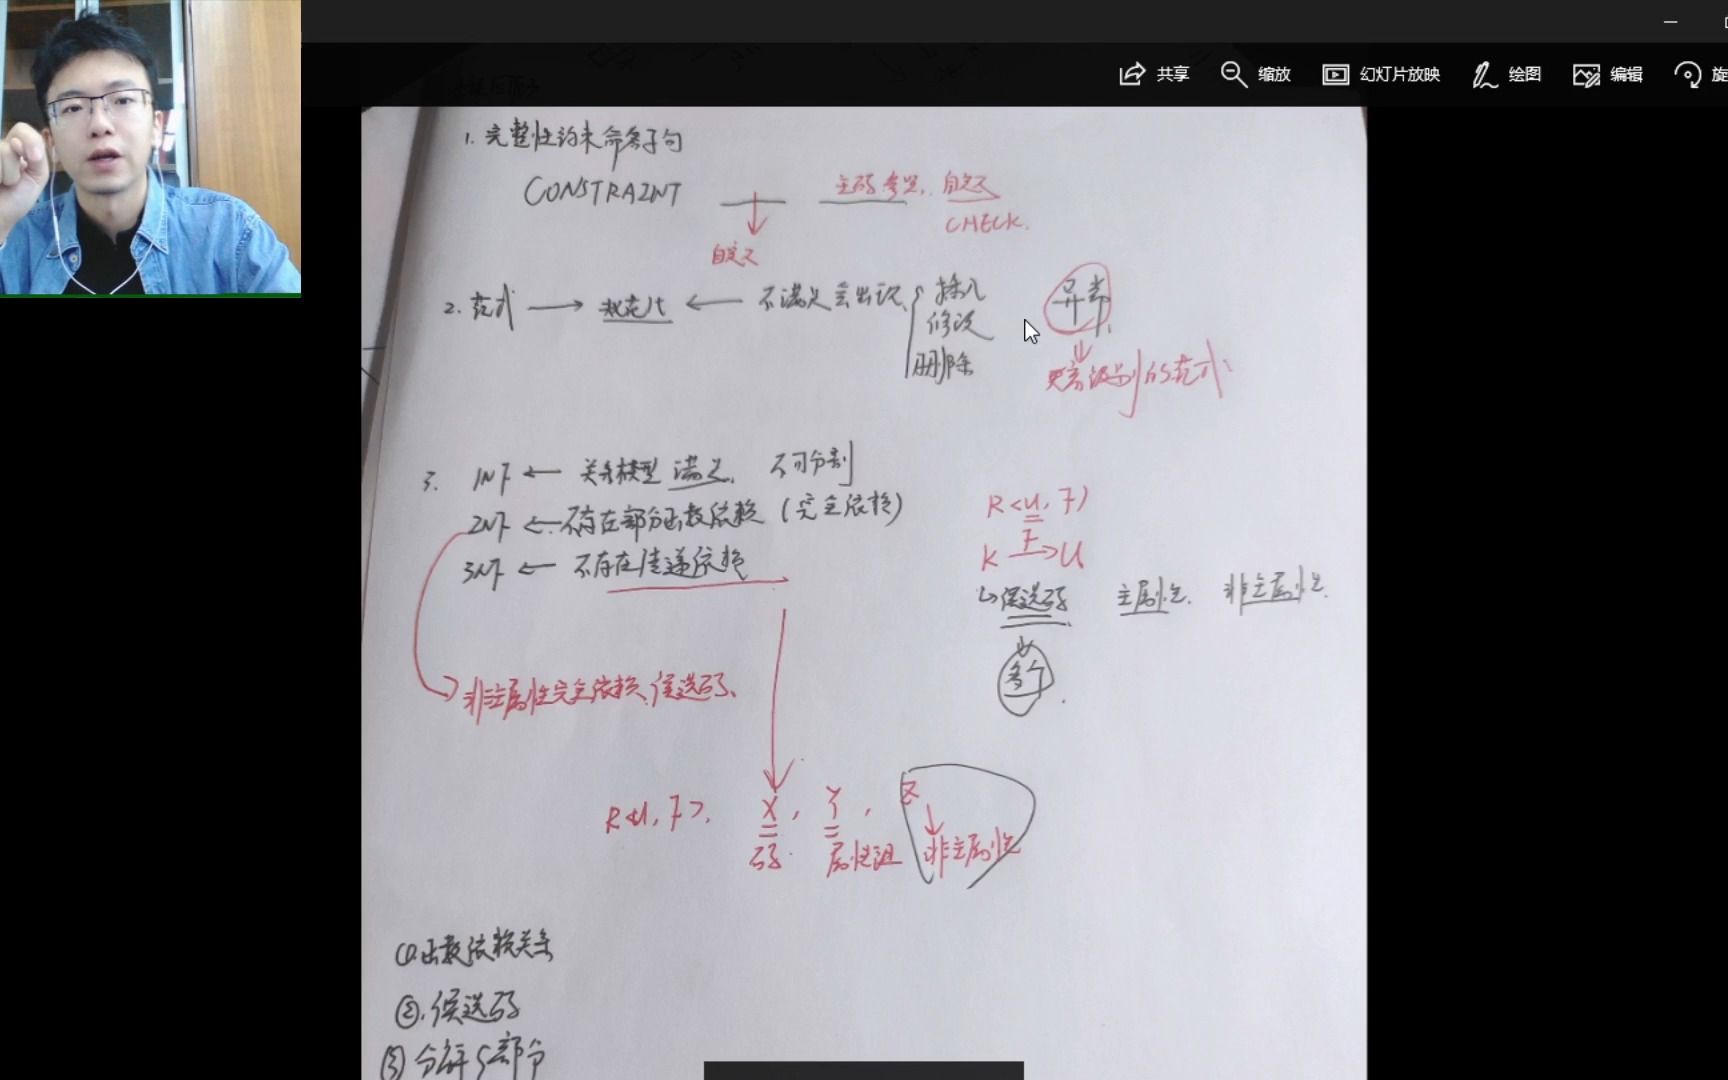 共享 缩放 幻灯片放映 绘图 编辑 旋
1. 完整性约束命名子句
CONSTRAINT 主码 参照, 自定义
CHECK.
自定义
2. 范式 → 规范化 ← 不满足会出现 插入 异常
修改
删除
更高级别的范式
3. 1NF ← 关系模型 满足. 不可分割
2NF ← 不存在部分函数依赖 (完全依赖)
3NF ← 不存在传递依赖
R<U, F>
K →F U
↳候选码 主属性. 非主属性.
多个
非主属性完全依赖 候选码.
R<U, F>, X, Y, Z
码. 属性组 非主属性
①函数依赖关系
②.候选码
③分解 部分